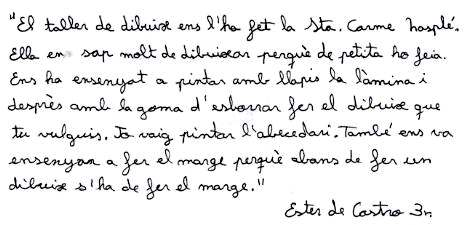 "El taller de dibuix ens l'ha fet la Sta. Carme Nosplé.
Ella en sap molt de dibuixar perquè de petita ho feia.
Ens ha ensenyat a pintar amb llapis la làmina i
desprès amb la goma d'esborrar fer el dibuix que
tu vulguis. Jo vaig pintar l'abecedari. També ens va
ensenyar a fer el marge perquè abans de fer un
dibuix s'ha de fer el marge."
Ester de Castro 3r.